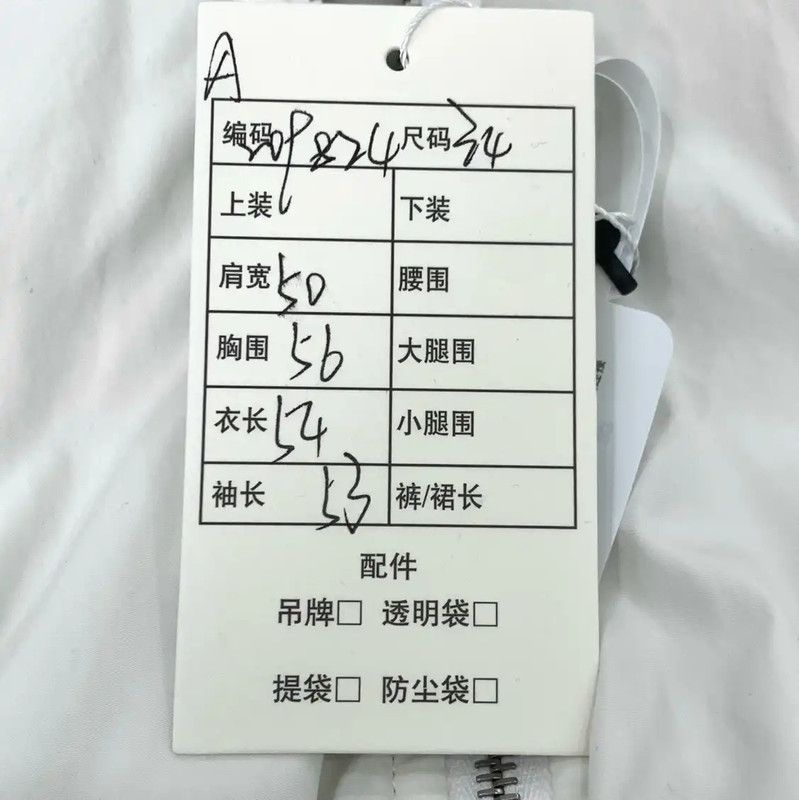 A
编码 209824 尺码 34
上装 下装
肩宽 50 腰围
胸围 56 大腿围
衣长 54 小腿围
袖长 53 裤/裙长
配件
吊牌□ 透明袋□
提袋□ 防尘袋□